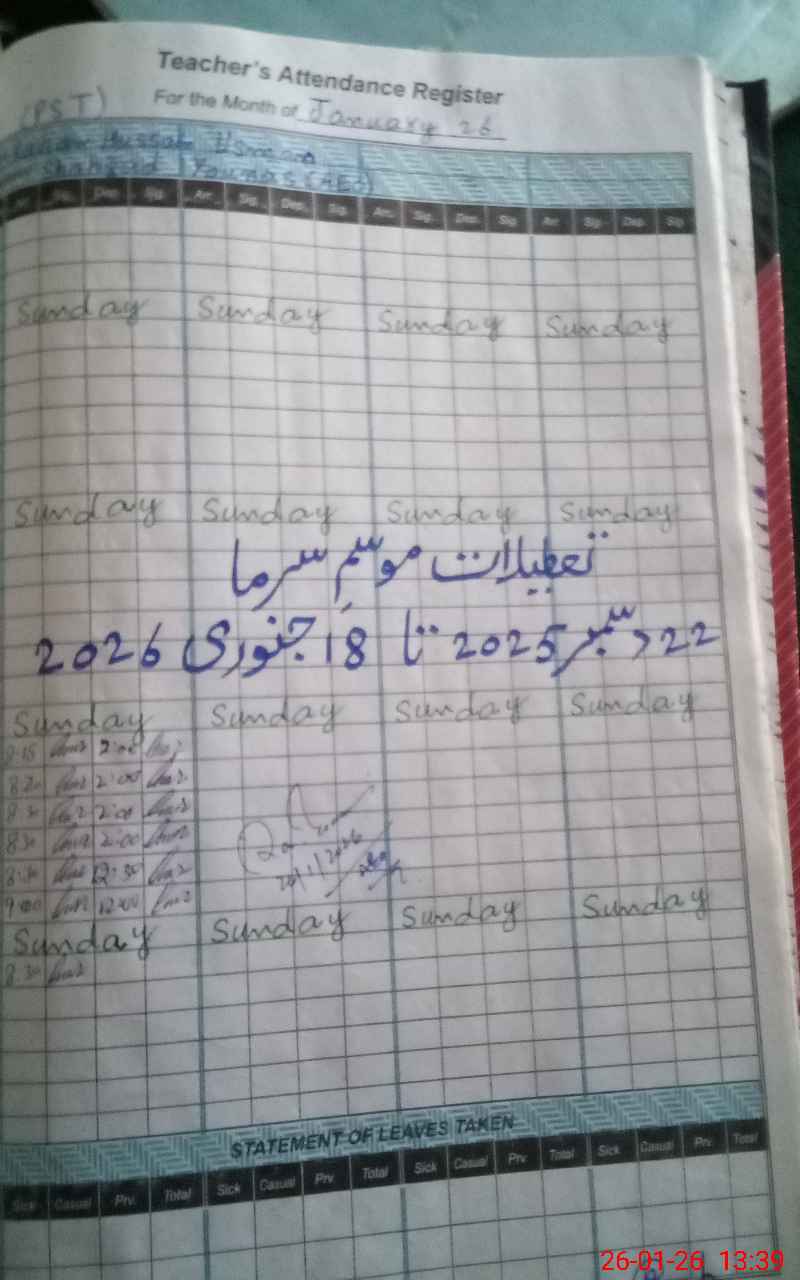 Teacher's Attendance Register
(PST) For the Month of January 26
Hussain Usman
Shahzad Younas (AEO)
Arr. Sig. Dep. Sig. Arr. Sig. Dep. Sig. Arr. Sig. Dep. Sig. Arr. Sig. Dep. Sig.
Sunday Sunday Sunday Sunday
Sunday Sunday Sunday Sunday
تعطیلات موسمِ سرما
22 دسمبر 2025 تا 18 جنوری 2026
Sunday Sunday Sunday Sunday
8:15 2:00
8:20 2:00
8:30 2:00
8:30 2:00
8:30 12:30
9:00 12:00
Sunday Sunday Sunday Sunday
8:30
STATEMENT OF LEAVES TAKEN
Sick Casual Prv. Total Sick Casual Prv. Total Sick Casual Prv. Total Sick Casual Prv. Total
26-01-26 13:39